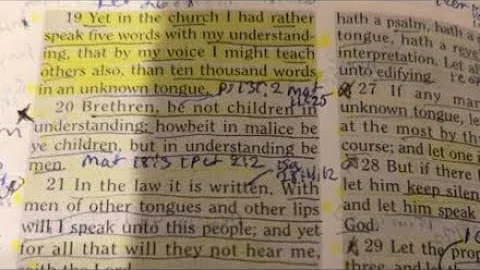 19 Yet in the church I had rather
speak five words with my understand-
ing, that by my voice I might teach
others also, than ten thousand words
in an unknown tongue. ps 131:2 mat
11:25
20 Brethren, be not children in
understanding: howbeit in malice be
ye children, but in understanding be
men. mat 18:3 1 Pet 2:2 isa
28:11,12
21 In the law it is written, With
men of other tongues and other lips
will I speak unto this people; and yet
for all that will they not hear me,
with the Lord
hath a psalm, hath a
tongue, hath a reve
interpretation. Let al
unto edifying.
27 If any man
unknown tongue, le
at the most by th
course; and let one i
28 But if there
let him keep silen
and let him speak
God.
29 Let the prop
three, and let the